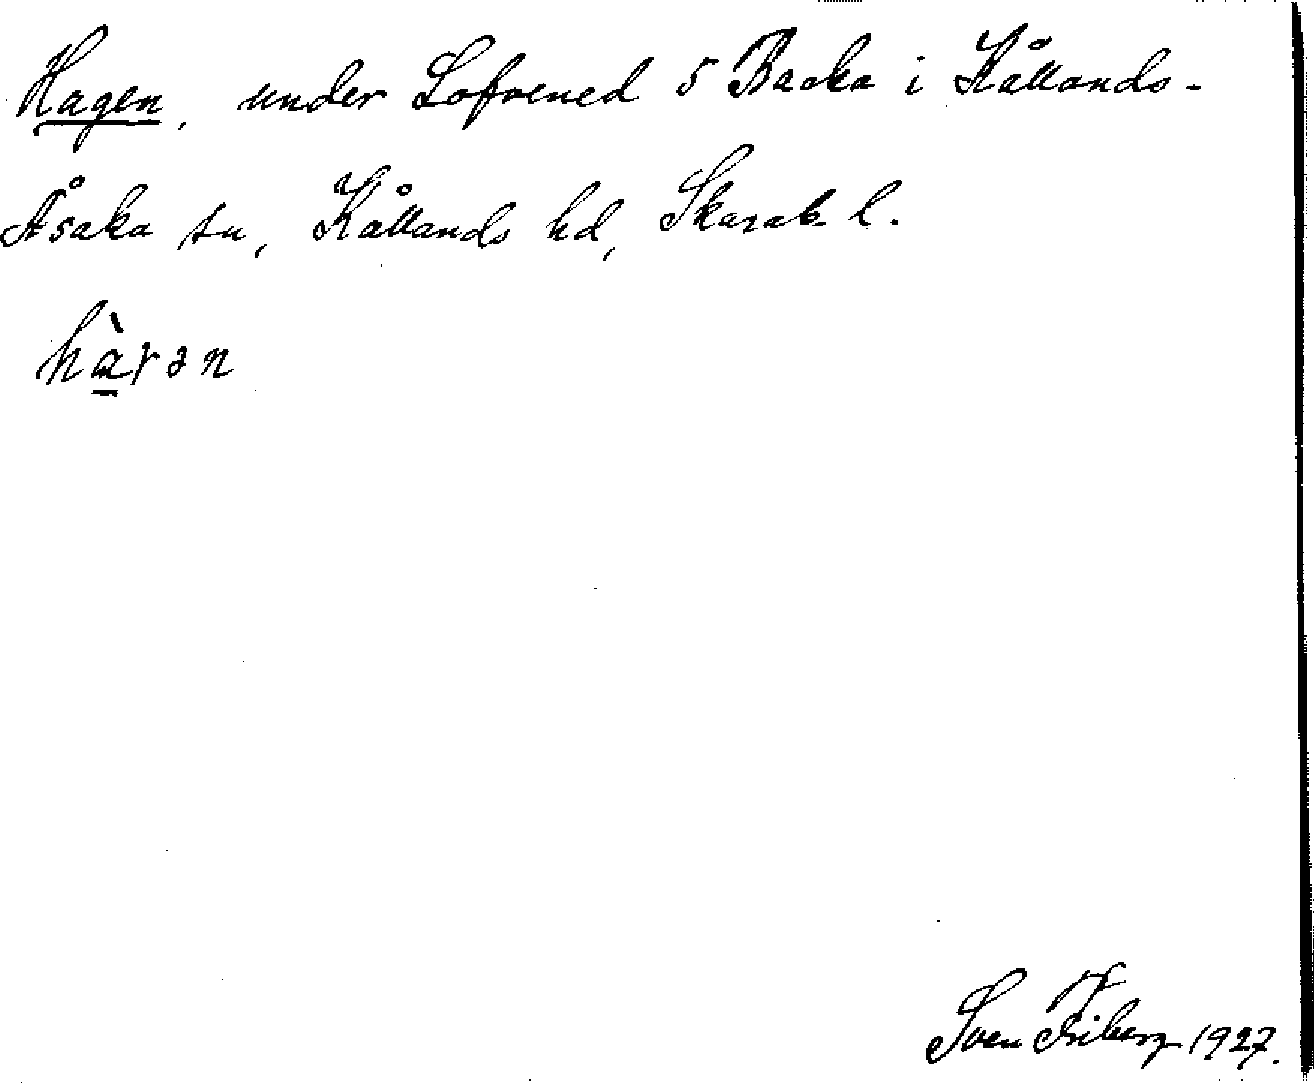 Hagen, under Lofvened 5 Backa i Kållands-
Åsaka sn, Kållands hd, Skarab. l.
hàɣən
Sven Friberg 1927.